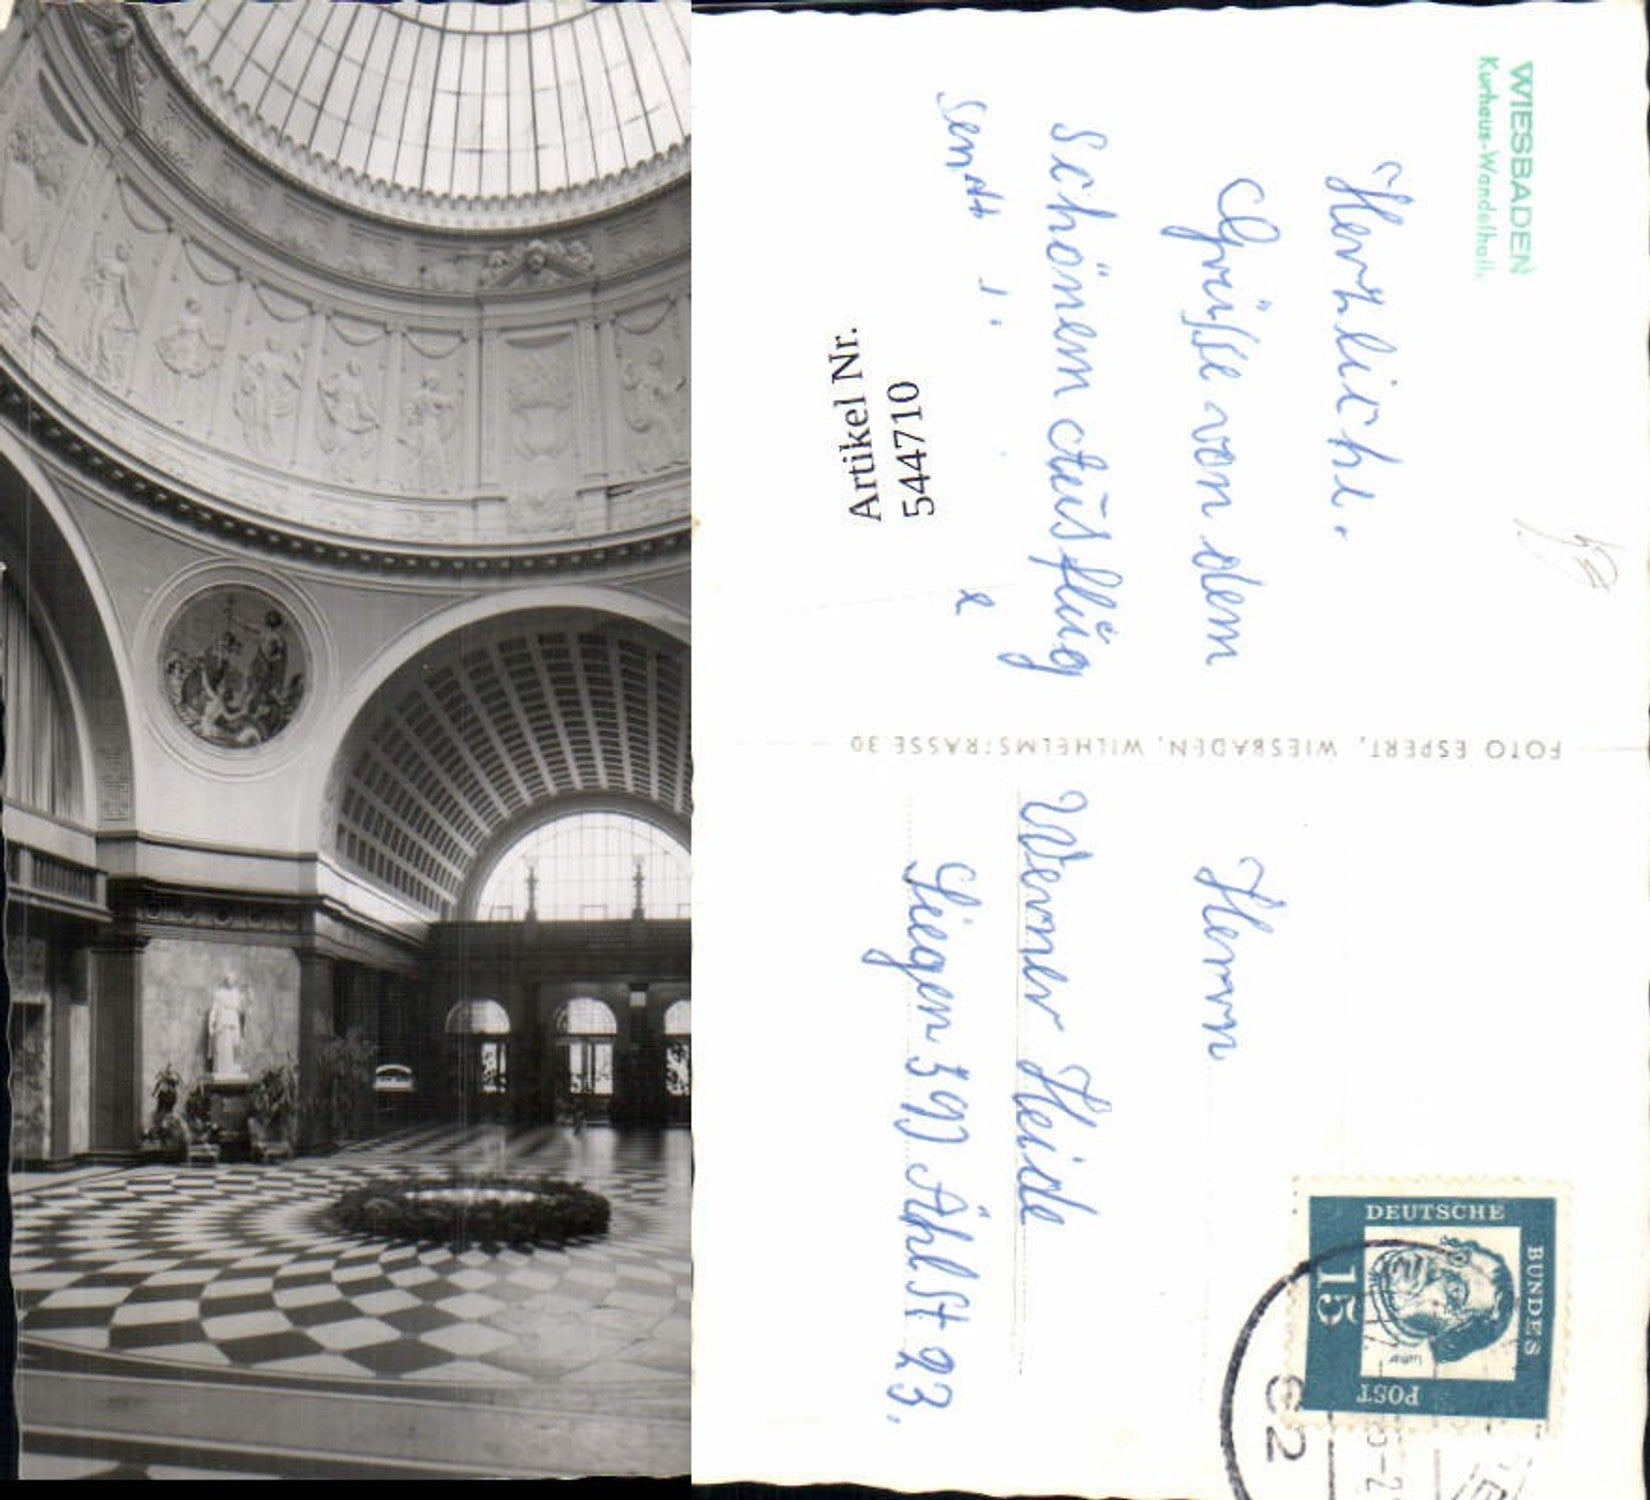 WIESBADEN
Kurhaus-Wandelhalle
Herzliche
Grüsse von dem
Schönem Ausflug
sendt
e
Artikel Nr.
544710
FOTO ESPERT, WIESBADEN, WILHELMSTRASSE 30
Herrn
Werner Heide
Siegen 397 Ählst 23.
DEUTSCHE
BUNDES
POST
15
Luther
62